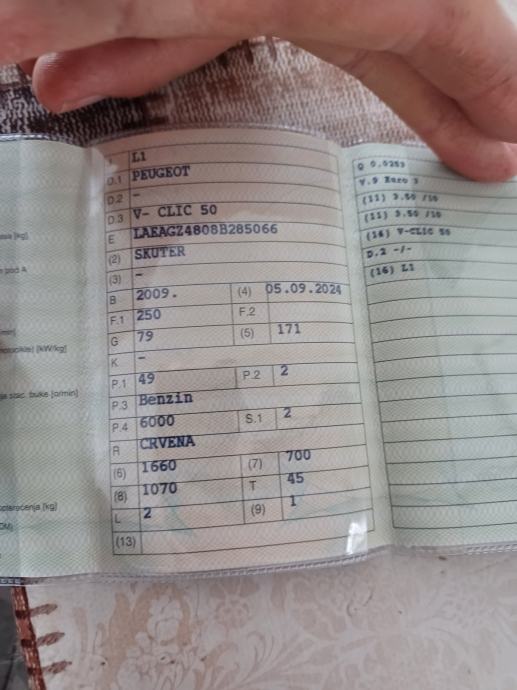 L1
D.1 PEUGEOT
D.2 -
D.3 V- CLIC 50
E LAEAGZ4808B285066
(2) SKUTER
(3) -
B 2009. (4) 05.09.2024
F.1 250 F.2
G 79 (5) 171
K -
P.1 49 P.2 2
P.3 Benzin
P.4 6000 S.1 2
R CRVENA
(6) 1660 (7) 700
(8) 1070 T 45
L 2 (9) 1
(13)
Q 0,0253
V.9 Euro 3
(11) 3.50 /10
(11) 3.50 /10
(14) V-CLIC 50
D.2 -/-
(16) L1
[kg]
pod A
[kW/kg]
stac. buke [o/min]
opterećenja [kg]